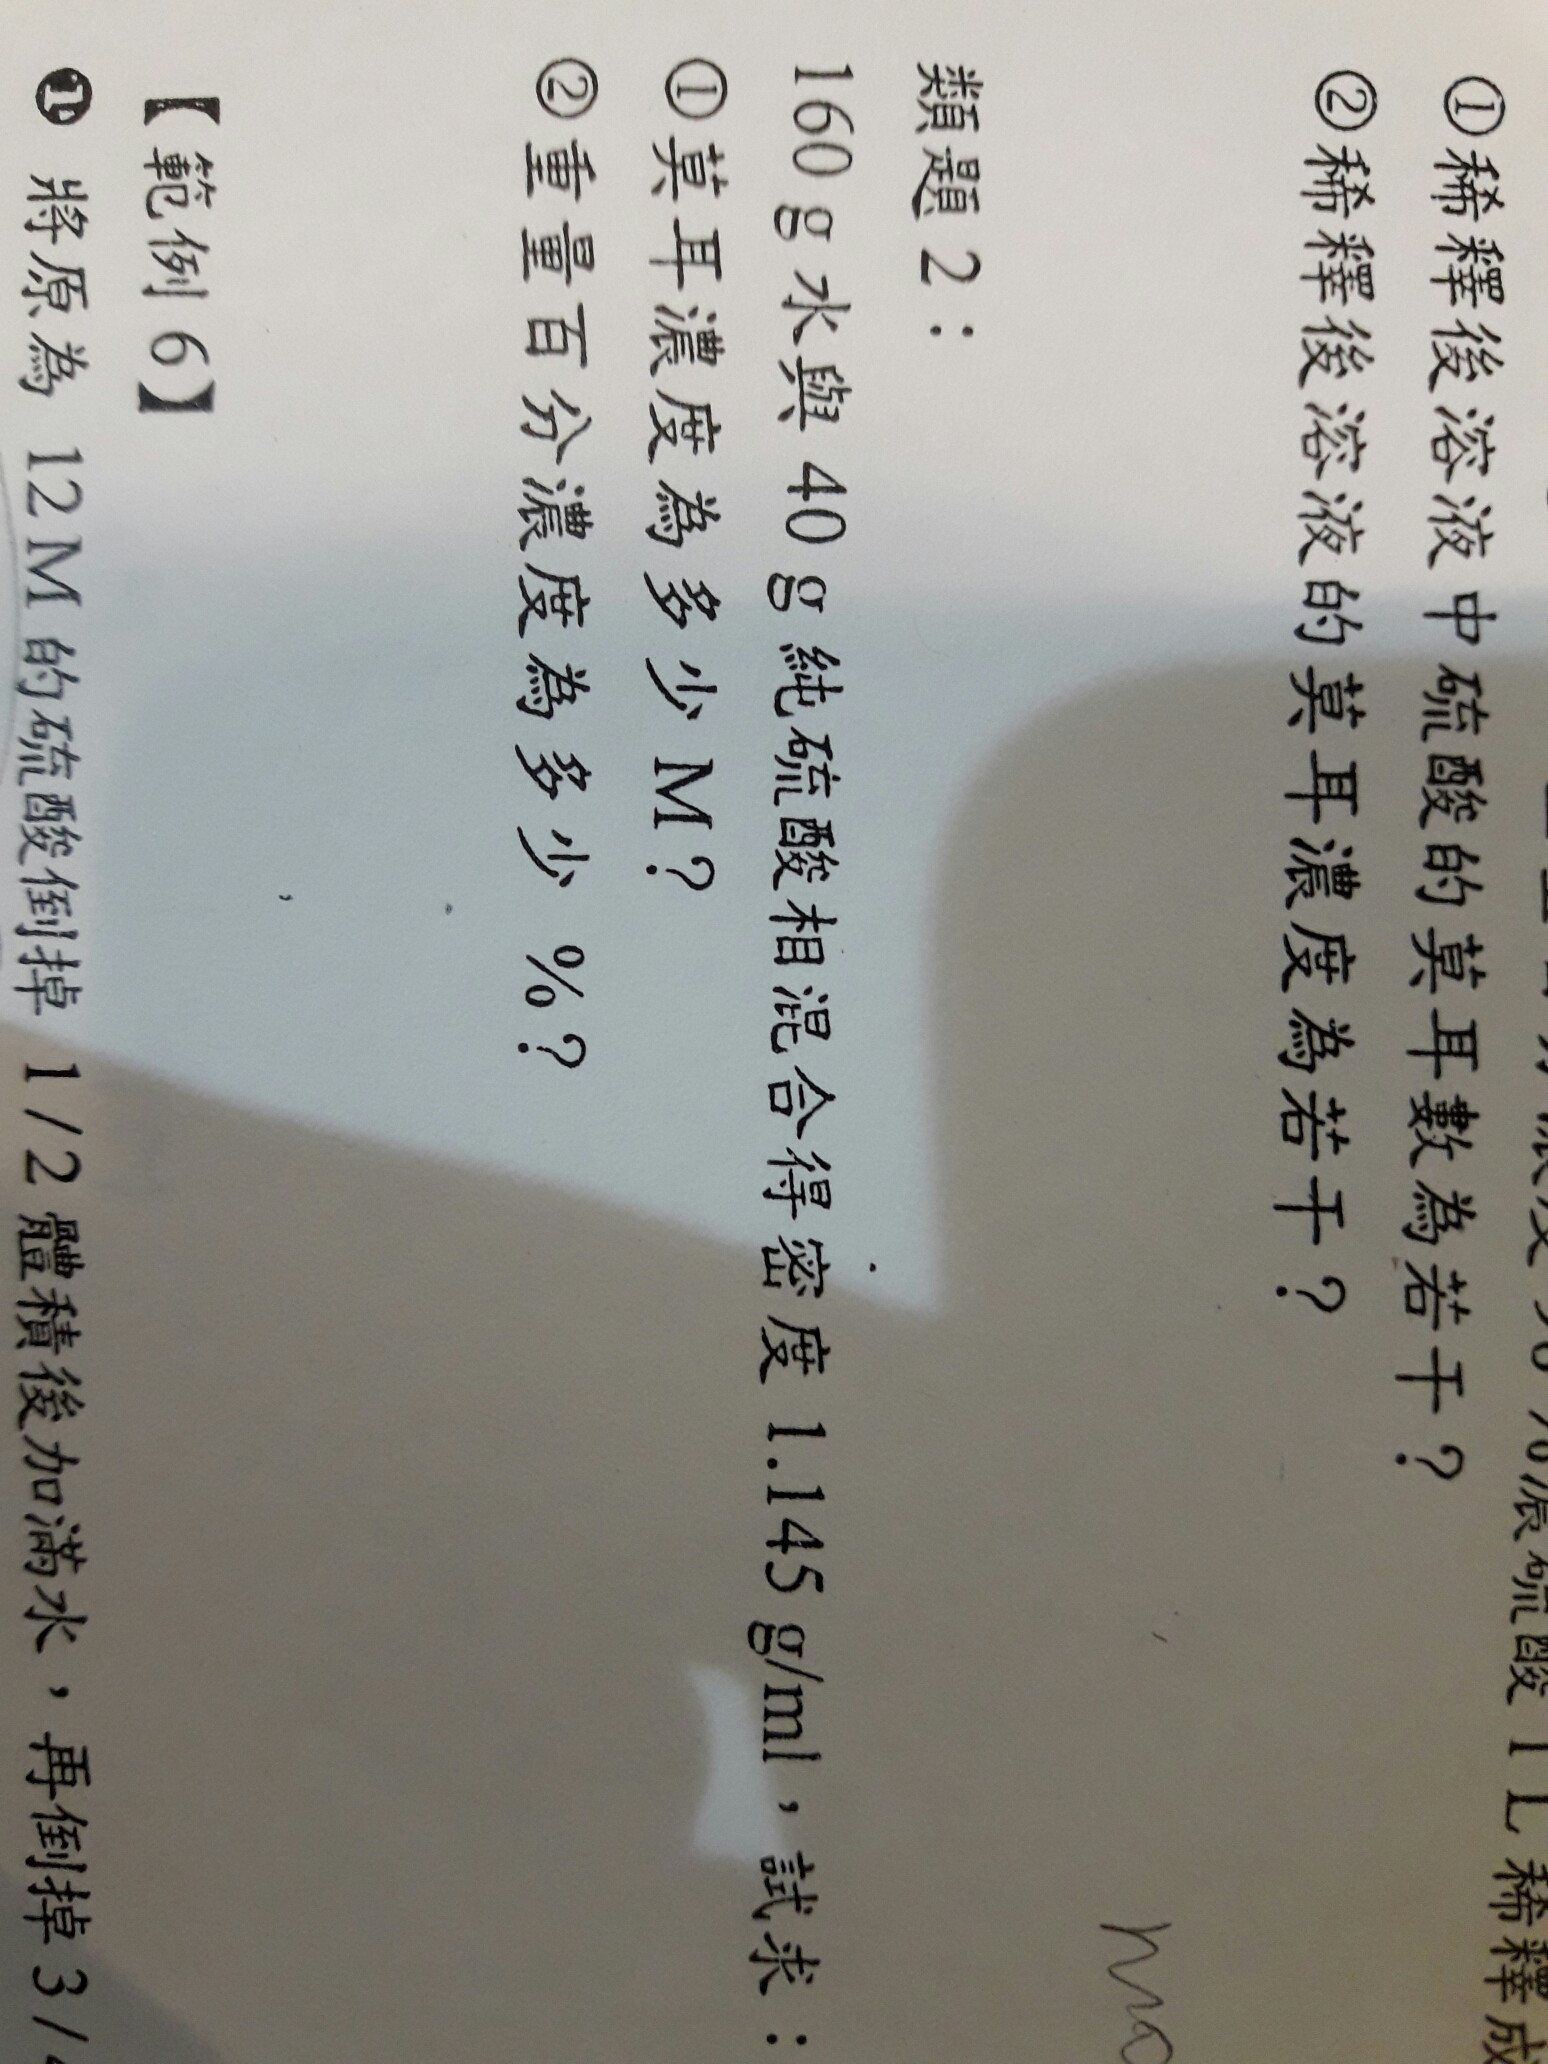 %濃硫酸 1 L 稀釋成
①稀釋後溶液中硫酸的莫耳數為若干？
②稀釋後溶液的莫耳濃度為若干？
類題 2：
160 g 水與 40 g 純硫酸相混合得密度 1.145 g/ml，試求：
①莫耳濃度為多少 M？
②重量百分濃度為多少 %？
【範例 6】
❶ 將原為 12 M 的硫酸倒掉 1/2 體積後加滿水，再倒掉 3/